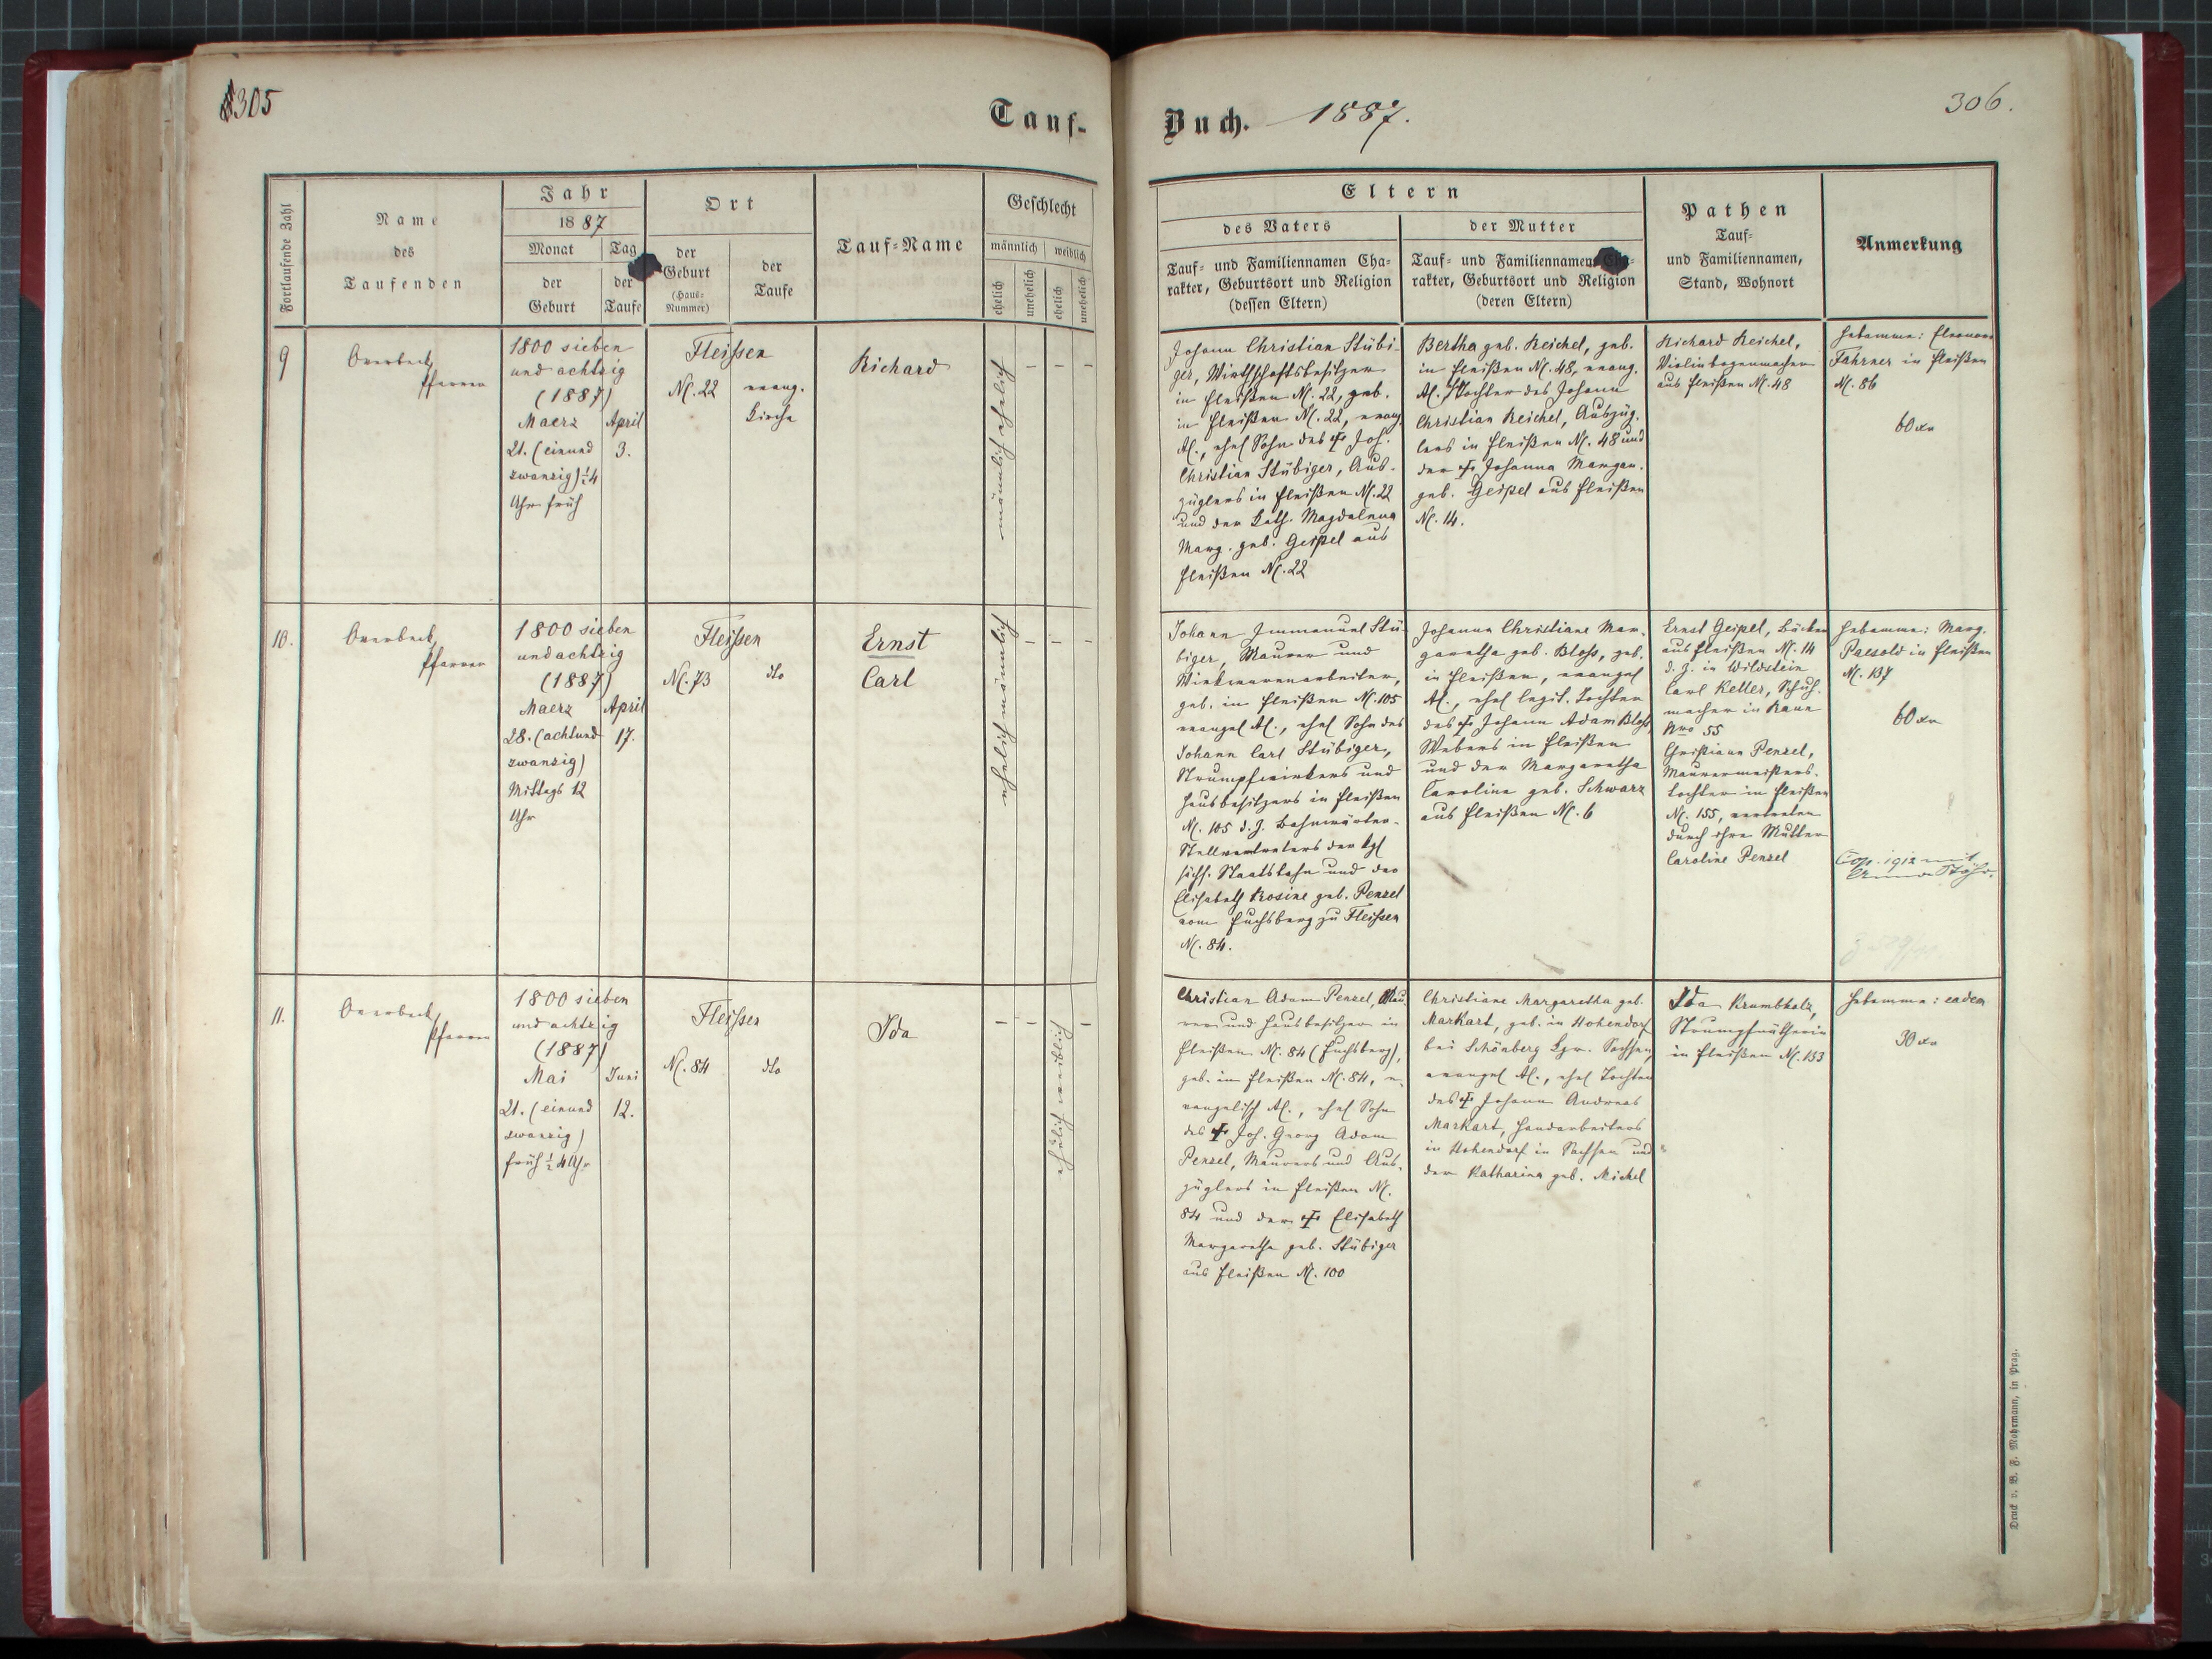 305
Tauf-
Fortlaufende Zahl
Name
des
Taufenden
Jahr
1887
Monat
der
Geburt
Tag
der
Taufe
Ort
der
Geburt
(Haus-
Nummer)
der
Taufe
Tauf-Name
Geschlecht
männlich
weiblich
ehelich
unehelich
ehelich
unehelich
9
Overbeck
Pfarrer
1800 sieben
und achtzig
(1887)
Maerz
21. (einund
zwanzig) ½4
Uhr früh
April
3.
Fleißen
N. 22
evang.
Kirche
Richard
männlich ehelich
– – –
10.
Overbeck
Pfarrer
1800 sieben
und achtzig
(1887)
Maerz
28. (achtund
zwanzig)
Mittags 12
Uhr
April
17.
Fleißen
N. 73
dto
Ernst
Carl
ehelich männlich
– – –
11.
Overbeck
Pfarrer
1800 sieben
und achtzig
(1887)
Mai
21. (einund
zwanzig)
früh ½4 Uhr
Juni
12.
Fleißen
N. 84
dto
Ida
– –
ehelich weiblich
–
Buch. 1887.
306.
Eltern
des Vaters
Tauf- und Familiennamen Cha-
rakter, Geburtsort und Religion
(dessen Eltern)
der Mutter
Tauf- und Familiennamen Cha-
rakter, Geburtsort und Religion
(deren Eltern)
Pathen
Tauf-
und Familiennamen,
Stand, Wohnort
Anmerkung
Johann Christian Stübi-
ger, Wirthschaftsbesitzer
in Fleißen N. 22, geb.
in Fleißen N. 22, evang.
AC., ehel Sohn des † Joh.
Christian Stübiger, Aus-
züglers in Fleißen N. 22
und der Kath. Magdalena
Marg. geb. Geipel aus
Fleißen N. 22
Bertha geb. Reichel, geb.
in Fleißen N. 48, evang.
AC. Tochter des Johann
Christian Reichel, Auszüg-
lers in Fleißen N. 48 und
der † Johanna Margar.
geb. Geipel aus Fleißen
N. 14.
Richard Reichel,
Violinbogenmacher
aus Fleißen N. 48
Hebamme: Eleonore
Fahrner in Fleißen
N. 86
60 xr
Johann Immanuel Stü-
biger, Maurer und
Wirkwarenarbeiter,
geb. in Fleißen N. 105
evangel AC., ehel Sohn des
Johann Carl Stübiger,
Strumpfwirkers und
Hausbesitzers in Fleißen
N. 105 d. Z. Bahnwärter-
Stellvertreters der kgl
sächs. Staatsbahn und der
Elisabeth Rosine geb. Penzel
vom Fuchsberg zu Fleißen
N. 84.
Johanna Christiane Mar-
garetha geb. Bloss, geb.
in Fleißen, evangel
AC., ehel legit. Tochter
des † Johann Adam Bloß
Webers in Fleißen
und der Margaretha
Caroline geb. Schwarz
aus Fleißen N. 6
Ernst Geipel, Bäcker
aus Fleißen N. 14
d. Z. in Wildstein
Carl Keller, Schuh-
macher in
Nro 55
Christiane Penzel,
Maurermeisters-
tochter in Fleißen
N. 155, vertreten
durch ihre Mutter
Caroline Penzel
Hebamme: Marg.
Paesold in Fleißen
N. 137
60 xr
Cop. 1912 mit
Christian Adam Penzel, Mau-
rer und Hausbesitzer in
Fleißen N. 84 (Fuchsberg),
geb. in Fleißen N. 84, e-
vangelisch AC., ehel Sohn
des † Joh. Georg Adam
Penzel, Maurers und Aus-
züglers in Fleißen N.
84 und der † Elisabeth
Margaretha geb. Stübiger
aus Fleißen N. 100
Christiane Margaretha geb.
Markart, geb. in Hohendorf
bei Schönberg Kgr. Sachsen,
evangel AC., ehel Tochter
des † Johann Andreas
Markart, Handarbeiters
in Hohendorf in Sachsen und
der Katharina geb. Michel
Ida Krumbholz,
Strumpfnätherin
in Fleißen N. 153
Hebamme: eadem
30 xr
Druck v. B. F. Mohrmann, in Prag.